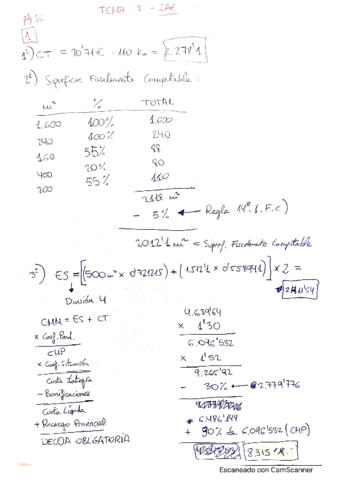 Pg 36
TEMA 2 - IAE
1
1º) CT = 20'71€ . 110 Kw = 2.278'1
2º) Superficie Fiscalmente Computable:
m² % TOTAL
1.600 100% 1.600
240 100% 240
160 55% 88
400 20% 80
200 55% 110
2118 m²
- 5% ← Regla 14ª.1.F.c)
2012'1 m² = Superf. Fiscalmente Computable
3º) ES = [(500m² x 0'721215) + (1512'1 x 0'558941)] x 2 =
División 4
CMM = ES + CT
x Coef. Pond.
CMP
x Coef. Situación
Cuota Íntegra
- Bonificaciones
Cuota Líquida
+ Recargo Provincial
DEUDA OBLIGATORIA
4.689'64
x 1'30
6.096'532
x 1'52
9.265'92
- 30% ← 2.779'776
6.486'144
+ 30% de 6.096'532 (CMP)
Escaneado con CamScanner